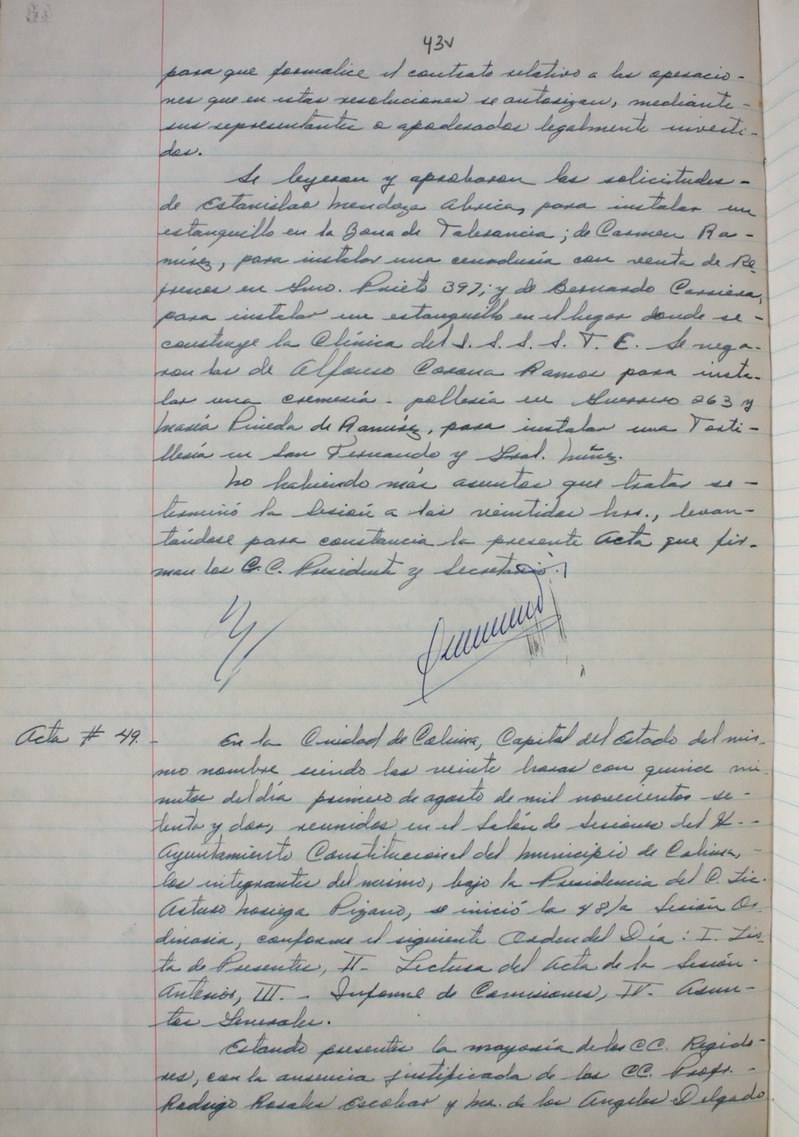 43v
para que formalice el contrato relativo a las operacio-
nes que en estas resoluciones se autorizan, mediante-
sus representantes o apoderados legalmente investi-
dos.
Se leyeron y aprobaron las solicitudes-
de Estanislao Mendoza Abrica, para instalar un
estanquillo en la Zona de Tolerancia; de Carmen Ra-
mírez, para instalar una cenaduría con venta de Re-
frescos en Gmo. Prieto 397; y de Bernardo Carrera,
para instalar un estanquillo en el lugar donde se-
construye la Clínica del I. S. S. S. T. E. Se nega-
ron las de Alfonso Ramos para insta-
lar una cremería - pollería en Guerrero 263 y
María Pineda de Ramírez, para instalar una Torti-
llería en San Fernando y Gral. Núñez.
No habiendo más asuntos que tratar se-
terminó la Sesión a las veintidos hrs., levan-
tándose para constancia la presente Acta que fir-
man los C.C. Presidente y Secretario.
Acta # 49.-
En la Ciudad de Colima, Capital del Estado del mis-
mo nombre siendo las veinte horas con quince mi-
nutos del día primero de agosto de mil novecientos se-
tenta y dos, reunidos en el Salón de Sesiones del H.-
Ayuntamiento Constitucional del Municipio de Colima,-
los integrantes del mismo, bajo la Presidencia del C. Lic.
Arturo Noriega Pizano, se inició la 48/a Sesión Or-
dinaria, conforme el siguiente Orden del Día: I. Lis-
ta de Presentes, II- Lectura del Acta de la Sesión-
Anterior, III.- Informe de Comisiones, IV- Asun-
tos Generales.
Estando presentes la mayoría de los CC. Regido-
res, con la ausencia justificada de los CC. Profr.-
Rodrigo Rosales Escobar y Ma. de los Angeles Delgado